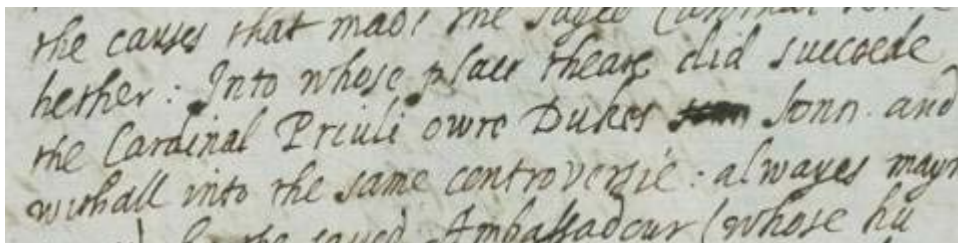 the causes that made the sayed Cardinal come
hether: Into whose place theare did succede
the Cardinal Priuli owre Dukes sonn. and
withall into the same controversie: alwayes mayn
the sayed Ambassadour (whose hu